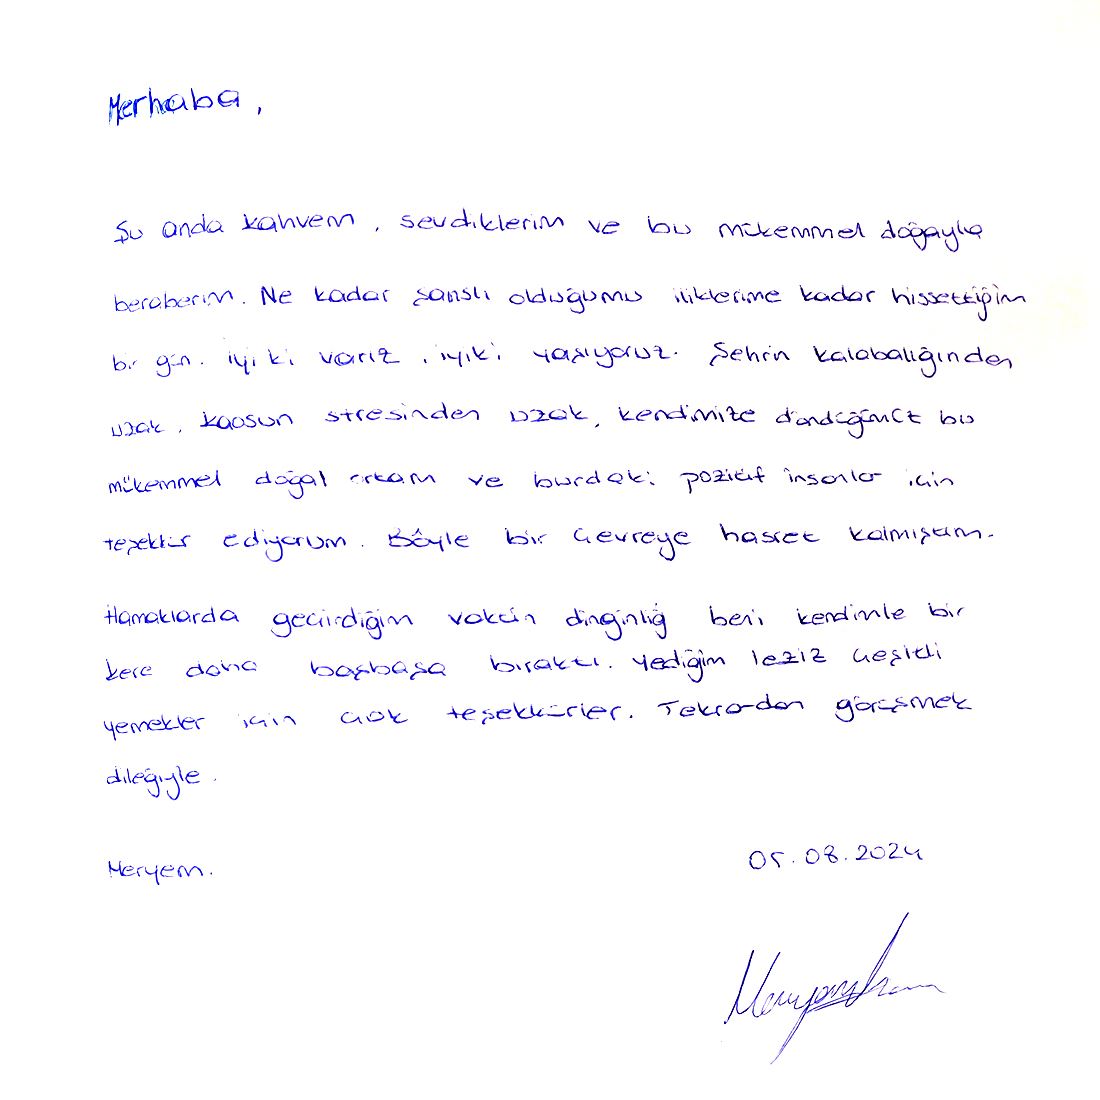 Merhaba,
Şu anda kahvem, sevdiklerim ve bu mükemmel doğayla
beraberim. Ne kadar şanslı olduğumu iliklerime kadar hissettiğim
bir gün. iyi ki varız, iyi ki yaşıyoruz. Şehrin kalabalığından
uzak, kaosun stresinden uzak, kendimize döndüğümüz bu
mükemmel doğal ortam ve burdaki pozitif insanlar için
teşekkür ediyorum. Böyle bir çevreye hasret kalmıştım.
Hamaklarda geçirdiğim vaktin dinginliği beni kendimle bir
kere daha başbaşa bıraktı. Yediğim leziz çeşitli
yemekler için çok teşekkürler. Tekrardan görüşmek
dileğiyle.
Meryem.
05.08.2024